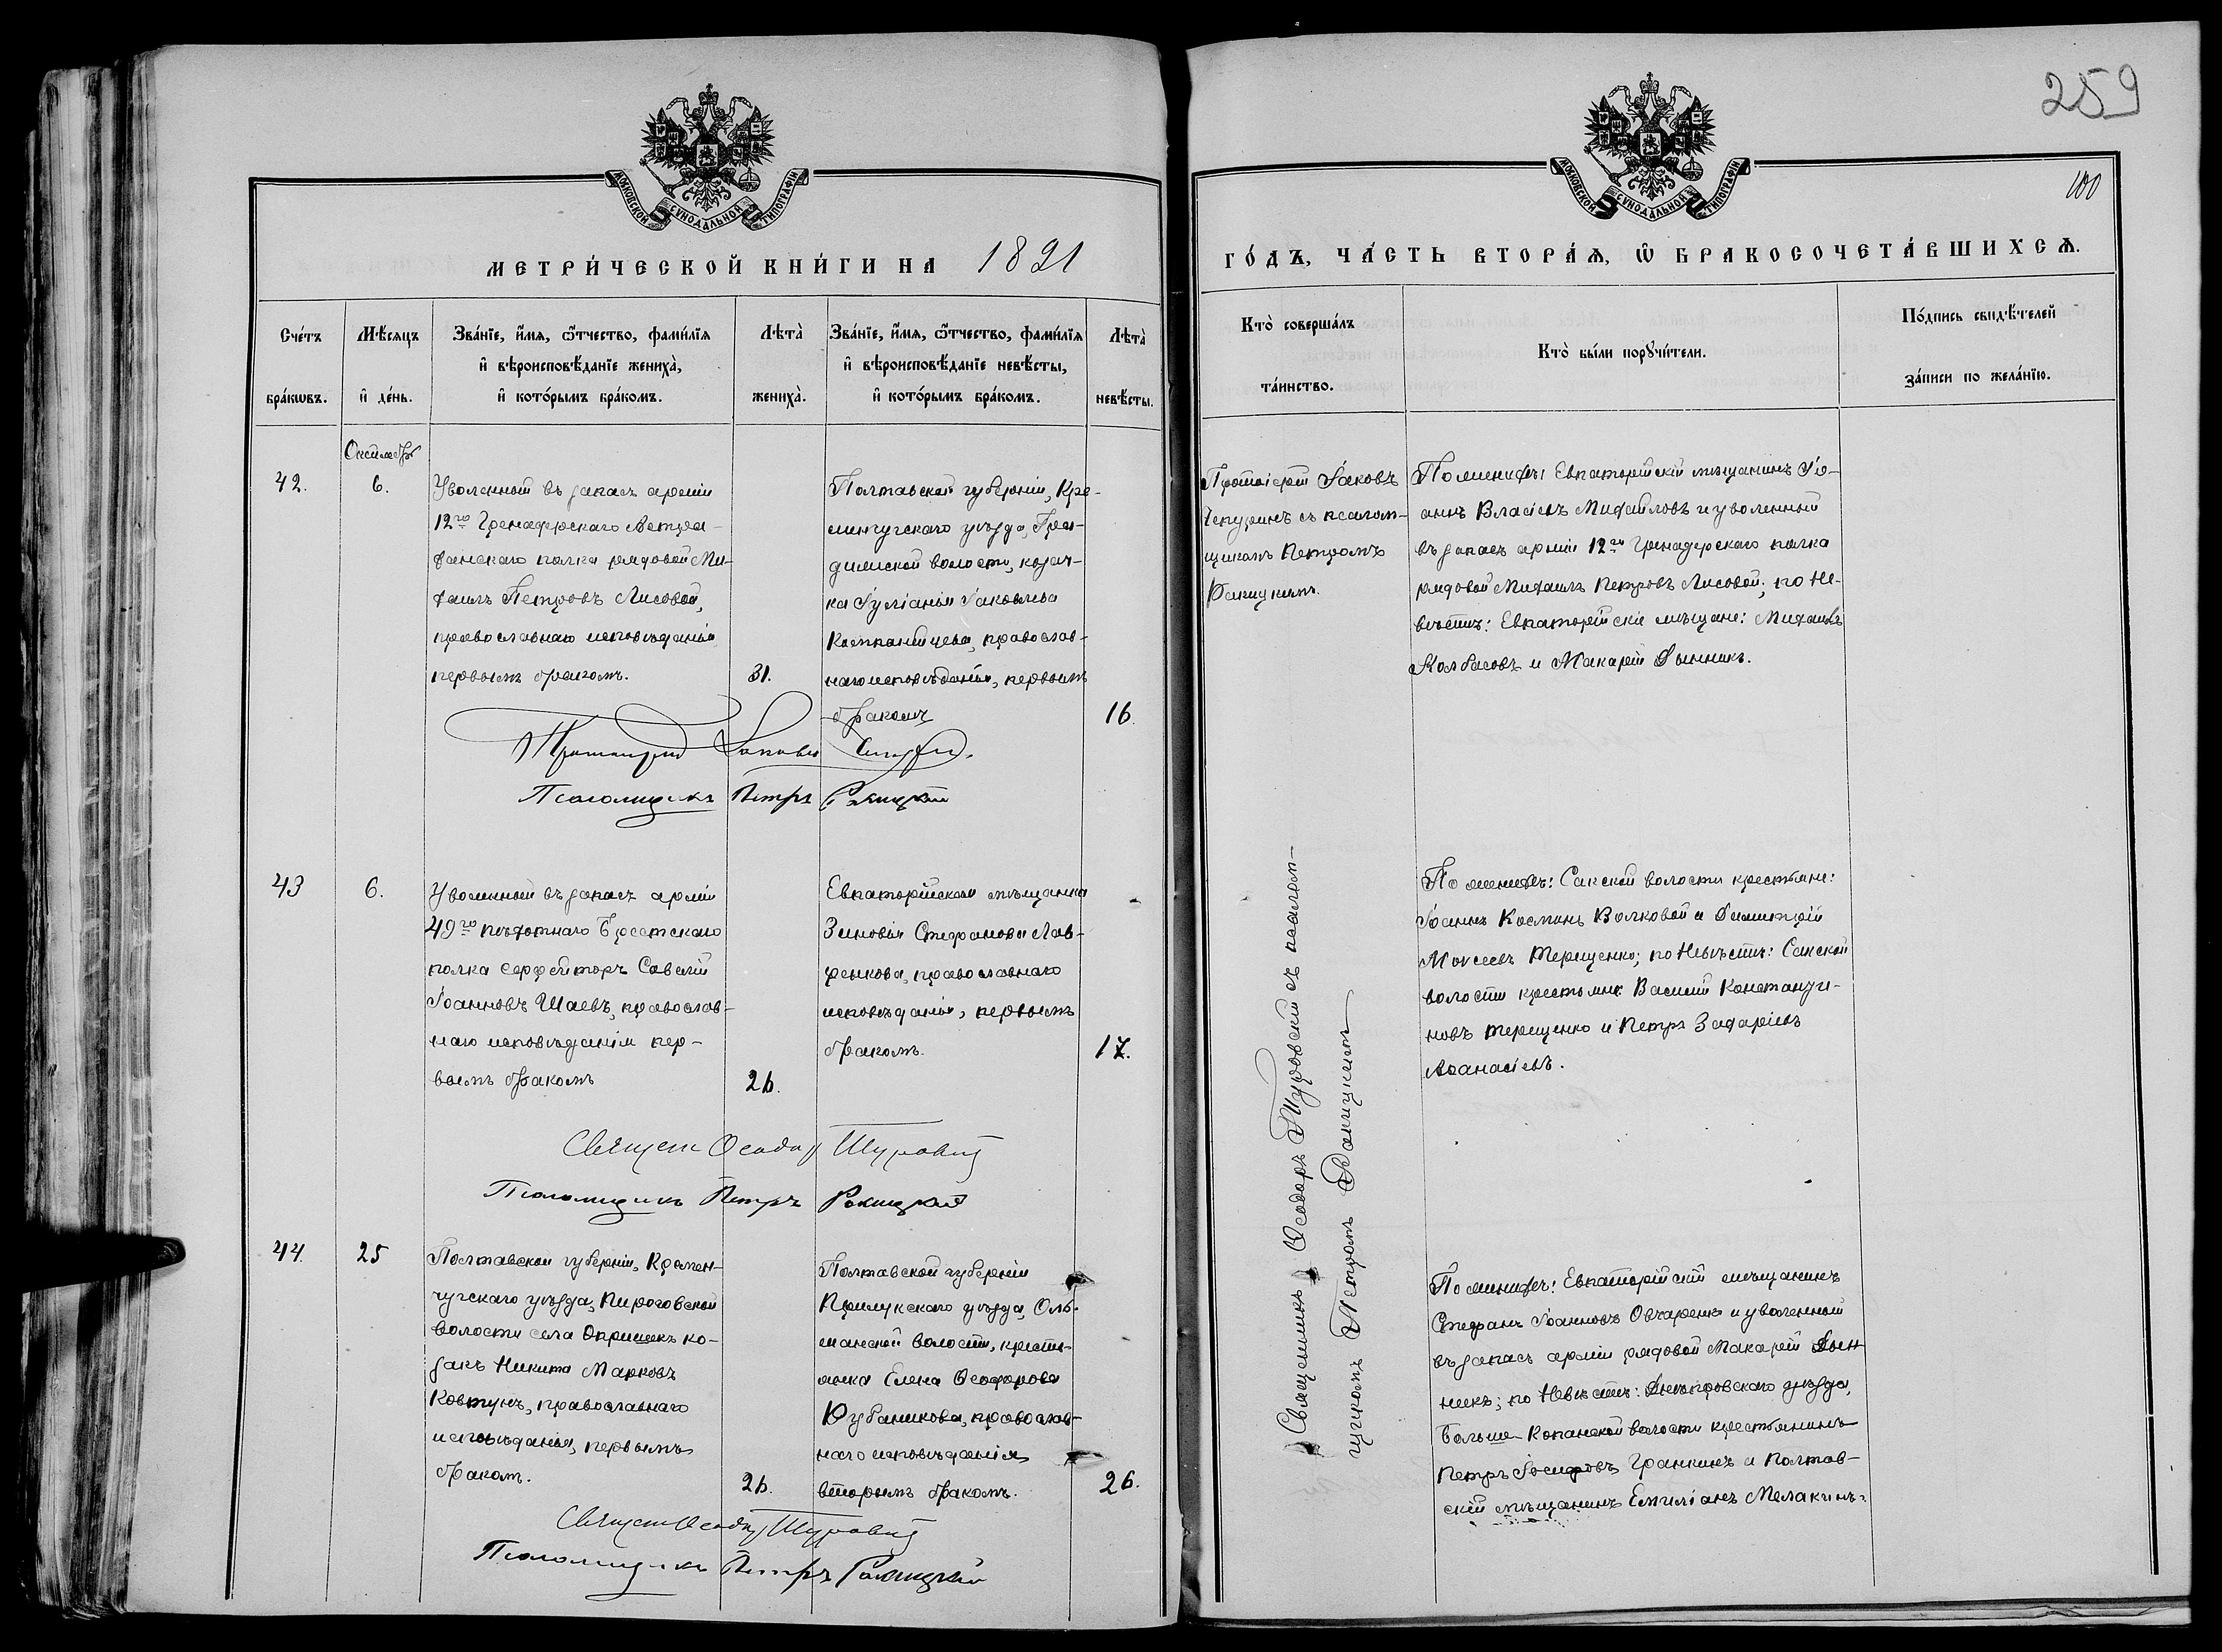 259
100
МОСКОВСКОЙ СѴНОДАЛЬНОЙ ТИПОГРАФІИ
МЕТРИ́ЧЕСКОЙ КНИ́ГИ НА 1891
Сче́тъ бра́кѡвъ.
Мѣ́сяцъ и҆ де́нь.
Зва́нїе, и҆́мя, ѻ҆́тчество, фами́лїя
и҆ вѣроисповѣ́данїе жениха̀,
и҆ кото́рымъ бра́комъ.
Лѣта̀ жениха̀.
Зва́нїе, и҆́мя, ѻ҆́тчество, фами́лїя
и҆ вѣроисповѣ́данїе невѣ́сты,
и҆ кото́рымъ бра́комъ.
Лѣта̀ невѣ́сты.
Октябрь
42.
6.
Уволенный въ запасъ арміи
12го Гренадерскаго Астра-
ханскаго полка рядовой Ми-
хаилъ Петровъ Лисовой,
православнаго исповѣданія
первымъ бракомъ.
31.
Полтавской губерніи, Кре-
менчугскаго уѣзда,
волости, козач-
ка Іуліанія Іаковлева
Компанійцева, православ-
наго исповѣданія, первымъ
бракомъ
16.
Протоіерей Іаковъ
Псаломщикъ Петръ Ракицкій
43
6.
Уволенный въ запасъ арміи
49го пѣхотнаго Брестскаго
полка ефрейторъ Савелій
Іоанновъ Шаевъ, православ-
наго исповѣданія пер-
вымъ бракомъ
26.
Евпаторійская мѣщанка
Зиновія Стефанова Лав-
ренкова, православнаго
исповѣданія, первымъ
бракомъ.
17.
Священ Ѳеодор Туровскій
Псаломщикъ Петръ Ракицкій
44.
25
Полтавской губерніи, Кремен-
чугскаго уѣзда, Пироговской
волости села Опришекъ ко-
закъ Никита Марковъ
Ковтунъ, православнаго
исповѣданія, первымъ
бракомъ.
26.
Полтавской губерніи
Прилукскаго уѣзда, Оль-
шанской волости, кресть-
янка Елена Ѳеодорова
православ-
наго исповѣданія
вторымъ бракомъ.
26.
Священ Ѳеодор Туровскій
Псаломщикъ Петръ Ракицкій
МОСКОВСКОЙ СѴНОДАЛЬНОЙ ТИПОГРАФІИ
ГО́ДЪ, ЧА́СТЬ ВТОРА́Я, Ѡ҆ БРАКОСОЧЕТА́ВШИХСЯ.
Кто̀ соверша́лъ
та́инство.
Кто̀ бы́ли порꙋчи́тели.
По́дпись свидѣ́телей
за́писи по жела́нїю.
Протоіерей Іаковъ
Чепуринъ съ псалом-
щикомъ Петромъ
Ракицкимъ.
По женихѣ: Евпаторійскій мѣщанинъ Іо-
аннъ Власіевъ Михайловъ и уволенный
въ запасъ арміи 12го Гренадерскаго полка
рядовой Михаилъ Петровъ Лисовой; по не-
вѣстѣ: Евпаторійскіе мѣщане: Михаилъ
Колбасовъ и Макарій Дынникъ.
Священникъ Ѳеодоръ Туровскій съ псалом-
щикомъ Петромъ Ракицкимъ
По женихѣ: Сакской волости крестьяне:
Іоаннъ Косминъ Волковой и Димитрій
Моѵсеевъ Терещенко; по невѣстѣ: Сакской
волости крестьяне Василій Константи-
новъ Терещенко и Петръ Захаріевъ
Аѳанасіевъ.
По женихѣ: Евпаторійскій мѣщанинъ
Стефанъ Іоанновъ Овчаренко и уволенный
въ запасъ арміи рядовой Макарій Дын-
никъ; по невѣстѣ: Днѣпровскаго уѣзда,
Больше-Копанской волости крестьянинъ
Петръ Іосифовъ Гранкинъ и Полтав-
скій мѣщанинъ Емиліанъ Мелакинъ.